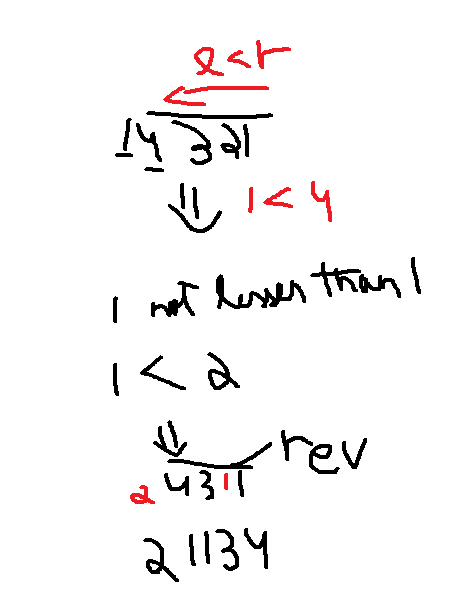 l < r
14 321
1 < 4
1 not lesser than 1
1 < 2
rev
2 4311
21134